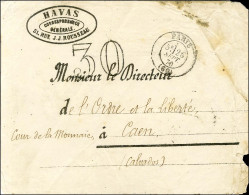 HAVAS
CORRESPONDANCE
GÉNÉRALE
31, RUE J.J. ROUSSEAU
30
PARIS
Monsieur le Directeur
de l'Ordre et la liberté,
Cour de la Monnaie, à Caen
(Calvados)